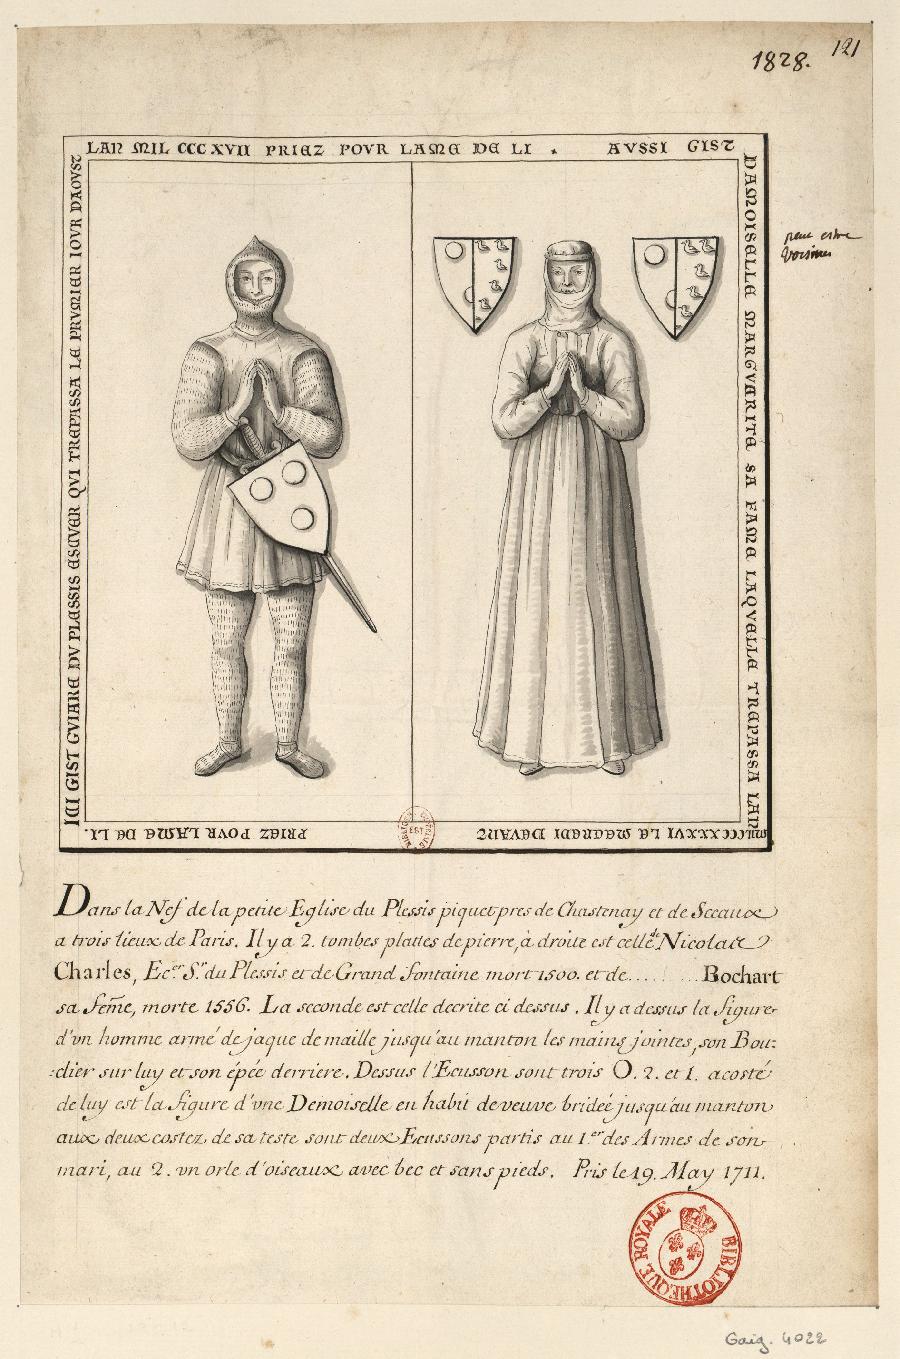 1828. 121
LAN MIL CCC XVII PRIEZ POVR LAME DE LI . AVSSI GIST
DAMOISELLE MARGVARITE SA FAME LAQVELLE TREPASSA LAN
MILCCCXXXVI LE MECREDI DEVANT
PRIEZ POVR LAME DE LI.
ICI GIST GVIARE DV PLESSIS ESCVER QVI TREPASSA LE PRVMIER IOVR DAOVST
peut estre
Voisines
Dans la Nef de la petite Eglise du Plessis piquet pres de Chastenay et de Sceaux
a trois lieux de Paris. Il y a 2. tombes plattes de pierre, à droite est celle de Nicolas
Charles, Ecer Sr. du Plessis et de Grand fontaine mort 1500. et de........Bochart
sa fem̄e, morte 1556. La seconde est celle decrite ci dessus. Il y a dessus la figure
d'vn homme armé de jaque de maille jusqu'au manton les mains jointes, son Bou:
:clier sur luy et son épée derriere. Dessus l'Ecusson sont trois O. 2. et 1. acosté
de luy est la figure d'vne Demoiselle en habit de veuve brideé jusqu'au manton
aux deux costez de sa teste sont deux Ecussons partis au 1.er des Armes de son
mari, au 2. vn orle d'oiseaux avec bec et sans pieds. Pris le 19. May 1711.
BIBLIOTHEQUE ROYALE
Gaig. 4022